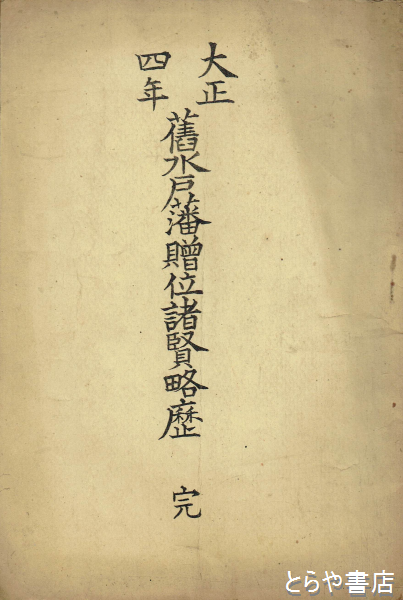 大正
四年
舊水戸藩贈位諸賢略歴 完
とらや書店